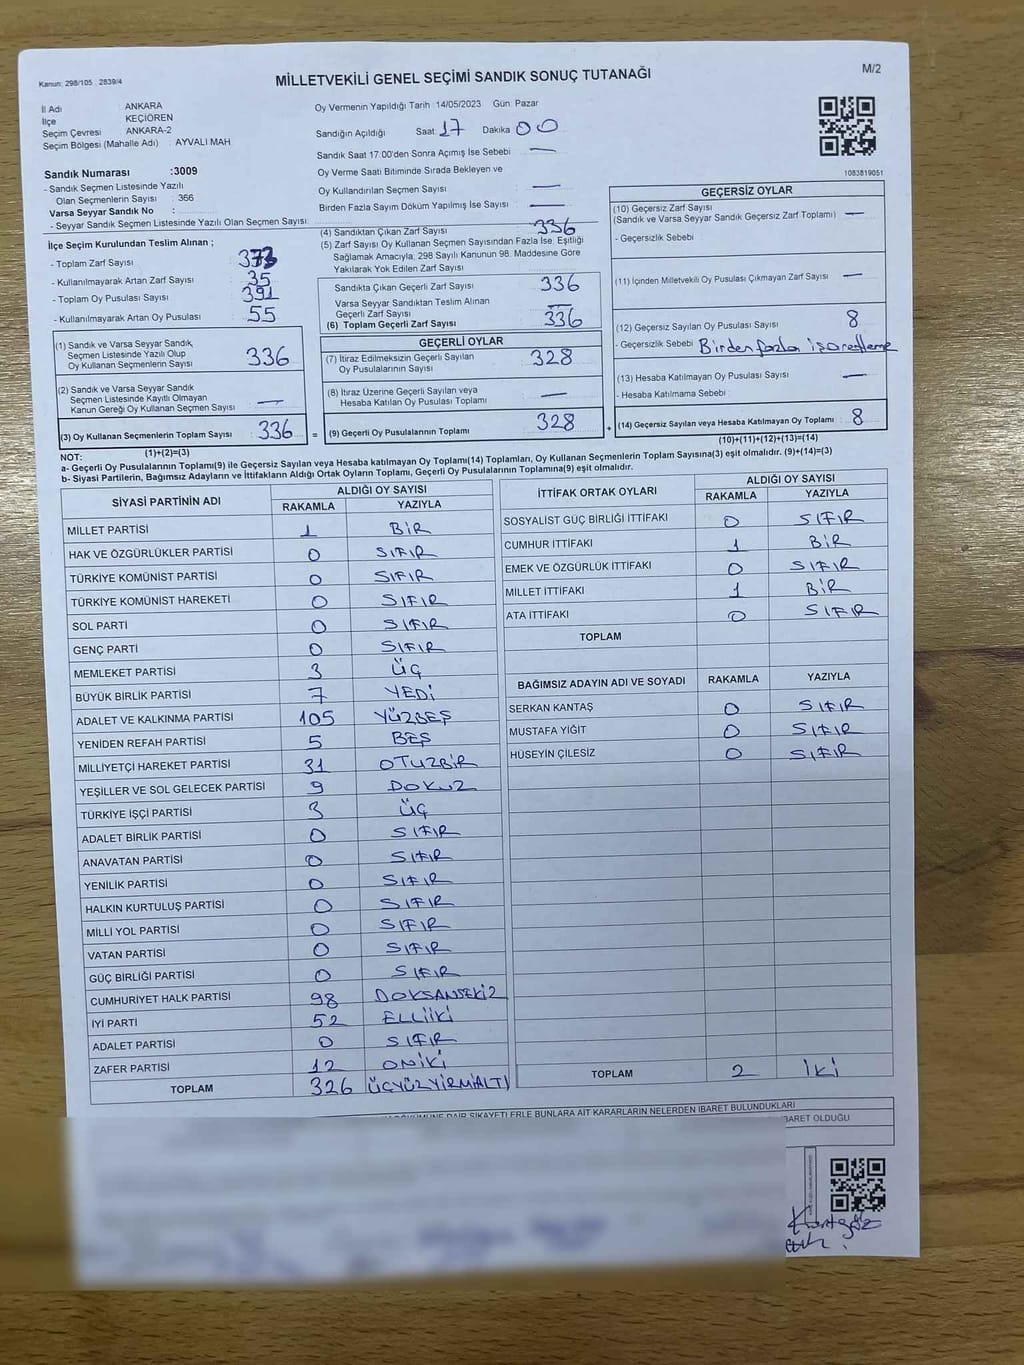 Kanun: 298/105 2839/4
MİLLETVEKİLİ GENEL SEÇİMİ SANDIK SONUÇ TUTANAĞI
M/2
İl Adı : ANKARA
İlçe KEÇİÖREN
Seçim Çevresi : ANKARA-2
Seçim Bölgesi (Mahalle Adı) : AYVALI MAH
Oy Vermenin Yapıldığı Tarih : 14/05/2023 Gün: Pazar
Sandığın Açıldığı Saat 17 Dakika 00
Sandık Saat 17:00'den Sonra Açımış İse Sebebi —
Oy Verme Saati Bitiminde Sırada Bekleyen ve
Oy Kullandırılan Seçmen Sayısı —
Birden Fazla Sayım Döküm Yapılmış İse Sayısı —
1083819051
Sandık Numarası :3009
- Sandık Seçmen Listesinde Yazılı
Olan Seçmenlerin Sayısı : 366
Varsa Seyyar Sandık No :
- Seyyar Sandık Seçmen Listesinde Yazılı Olan Seçmen Sayısı:
İlçe Seçim Kurulundan Teslim Alınan ;
- Toplam Zarf Sayısı 373
- Kullanılmayarak Artan Zarf Sayısı 35
- Toplam Oy Pusulası Sayısı 391
- Kullanılmayarak Artan Oy Pusulası 55
(1) Sandık ve Varsa Seyyar Sandık
Seçmen Listesinde Yazılı Olup
Oy Kullanan Seçmenlerin Sayısı 336
(2) Sandık ve Varsa Seyyar Sandık
Seçmen Listesinde Kayıtlı Olmayan
Kanun Gereği Oy Kullanan Seçmen Sayısı —
(3) Oy Kullanan Seçmenlerin Toplam Sayısı 336 =
(1)+(2)=(3)
(4) Sandıktan Çıkan Zarf Sayısı 336
(5) Zarf Sayısı Oy Kullanan Seçmen Sayısından Fazla İse, Eşitliği
Sağlamak Amacıyla, 298 Sayılı Kanunun 98. Maddesine Göre
Yakılarak Yok Edilen Zarf Sayısı
Sandıkta Çıkan Geçerli Zarf Sayısı 336
Varsa Seyyar Sandıktan Teslim Alınan
Geçerli Zarf Sayısı —
(6) Toplam Geçerli Zarf Sayısı 336
GEÇERLİ OYLAR
(7) İtiraz Edilmeksizin Geçerli Sayılan
Oy Pusulalarının Sayısı 328
(8) İtiraz Üzerine Geçerli Sayılan veya
Hesaba Katılan Oy Pusulası Toplamı —
(9) Geçerli Oy Pusulalarının Toplamı 328 +
GEÇERSİZ OYLAR
(10) Geçersiz Zarf Sayısı
(Sandık ve Varsa Seyyar Sandık Geçersiz Zarf Toplamı) —
- Geçersizlik Sebebi
(11) İçinden Milletvekili Oy Pusulası Çıkmayan Zarf Sayısı —
(12) Geçersiz Sayılan Oy Pusulası Sayısı 8
- Geçersizlik Sebebi Birden fazla işaretleme
(13) Hesaba Katılmayan Oy Pusulası Sayısı —
- Hesaba Katılmama Sebebi
(14) Geçersiz Sayılan veya Hesaba Katılmayan Oy Toplamı 8
(10)+(11)+(12)+(13)=(14)
NOT:
a- Geçerli Oy Pusulalarının Toplamı(9) ile Geçersiz Sayılan veya Hesaba katılmayan Oy Toplamı(14) Toplamları, Oy Kullanan Seçmenlerin Toplam Sayısına(3) eşit olmalıdır. (9)+(14)=(3)
b- Siyasi Partilerin, Bağımsız Adayların ve İttifakların Aldığı Ortak Oyların Toplamı, Geçerli Oy Pusulalarının Toplamına(9) eşit olmalıdır.
SİYASİ PARTİNİN ADI ALDIĞI OY SAYISI
RAKAMLA YAZIYLA
MİLLET PARTİSİ 1 BİR
HAK VE ÖZGÜRLÜKLER PARTİSİ 0 SIFIR
TÜRKİYE KOMÜNİST PARTİSİ 0 SIFIR
TÜRKİYE KOMÜNİST HAREKETİ 0 SIFIR
SOL PARTİ 0 SIFIR
GENÇ PARTİ 0 SIFIR
MEMLEKET PARTİSİ 3 ÜÇ
BÜYÜK BİRLİK PARTİSİ 7 YEDİ
ADALET VE KALKINMA PARTİSİ 105 YÜZBEŞ
YENİDEN REFAH PARTİSİ 5 BEŞ
MİLLİYETÇİ HAREKET PARTİSİ 31 OTUZBİR
YEŞİLLER VE SOL GELECEK PARTİSİ 9 DOKUZ
TÜRKİYE İŞÇİ PARTİSİ 3 ÜÇ
ADALET BİRLİK PARTİSİ 0 SIFIR
ANAVATAN PARTİSİ 0 SIFIR
YENİLİK PARTİSİ 0 SIFIR
HALKIN KURTULUŞ PARTİSİ 0 SIFIR
MİLLİ YOL PARTİSİ 0 SIFIR
VATAN PARTİSİ 0 SIFIR
GÜÇ BİRLİĞİ PARTİSİ 0 SIFIR
CUMHURİYET HALK PARTİSİ 98 DOKSANSEKİZ
İYİ PARTİ 52 ELLİİKİ
ADALET PARTİSİ 0 SIFIR
ZAFER PARTİSİ 12 ONİKİ
TOPLAM 326 ÜÇYÜZYİRMİALTI
İTTİFAK ORTAK OYLARI ALDIĞI OY SAYISI
RAKAMLA YAZIYLA
SOSYALİST GÜÇ BİRLİĞİ İTTİFAKI 0 SIFIR
CUMHUR İTTİFAKI 1 BİR
EMEK VE ÖZGÜRLÜK İTTİFAKI 0 SIFIR
MİLLET İTTİFAKI 1 BİR
ATA İTTİFAKI 0 SIFIR
TOPLAM
BAĞIMSIZ ADAYIN ADI VE SOYADI RAKAMLA YAZIYLA
SERKAN KANTAŞ 0 SIFIR
MUSTAFA YİĞİT 0 SIFIR
HÜSEYİN ÇİLESİZ 0 SIFIR
TOPLAM 2 İKİ
DAİR ŞİKAYETLERLE BUNLARA AİT KARARLARIN NELERDEN İBARET BULUNDUKLARI
İBARET OLDUĞU